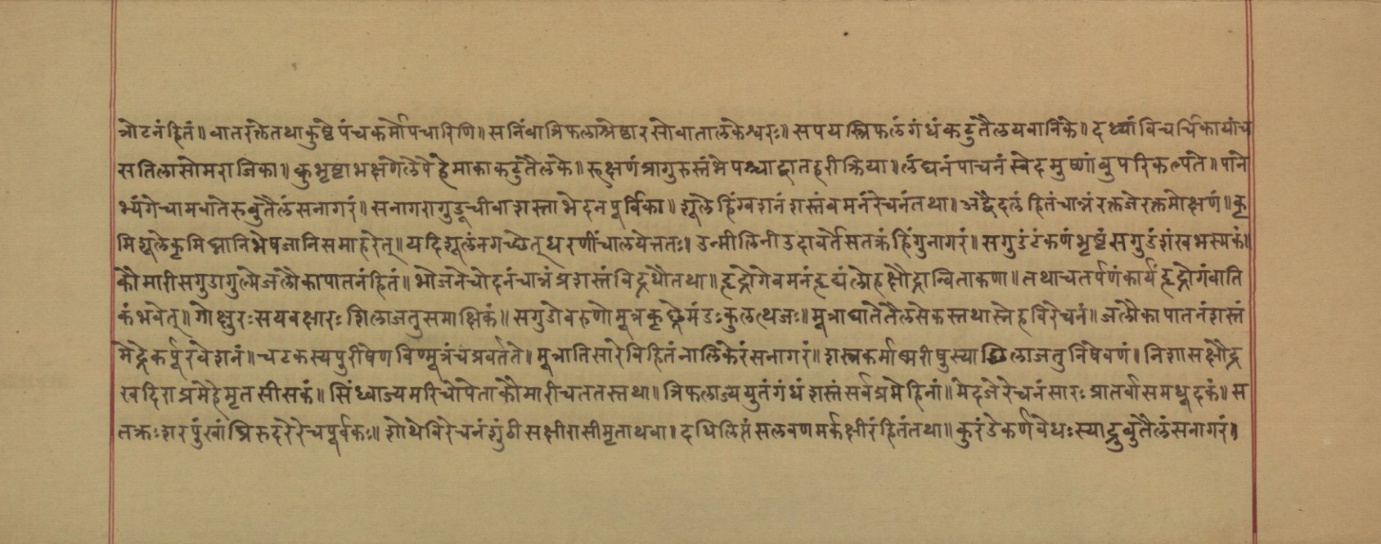 त्रोटनंहितं॥ वातरक्तेतथाकुष्ठेपंचकर्मोपचारिणि॥ सनिंबात्रिफलाश्रेष्ठारसोवातालकेश्वरः॥ सपयस्त्रिफलंगंधंकटुतैलयवानिके॥ दध्यांविचर्चिकायांच
सतिलासोमराजिका॥ कुभृष्टाभक्षणेलेपेहेमाकाकटुतैलके॥ रूक्षणंप्रागुरुस्तंभेपश्चाद्वातहरीक्रिया॥ लंघनंपाचनंस्वेदमुष्णांबुपरिकल्पते॥ पाने
भ्यंगेचामवातेरुबुतैलंसनागरं॥ सनागरागुडूचीवाशस्ताभेदनपूर्विका॥ शूलेहिंग्वशनंशस्तंवमनंरेचनंतथा॥ अद्वैदलंहितंचान्नंरक्तजेरक्तमोक्षणं॥ कृ
मिशूलेकृमिघ्नानिभेषजानिसमाहरेत्॥ यदिशूलंनगच्छेत्धरणींचालयेत्ततः। उन्मीलिनीउदावर्तेसतक्रंहिंगुनागरं॥ सगुडंटंकणंभृष्टंसगुडंशंखभस्मकं॥
कौमारीसगुडागुल्मेजलौकापातनंहितं॥ भोजनेचोदनंचान्नंप्रशस्तंविद्रधौतथा॥ हृद्रोगेवमनंहृद्यंलोहक्षौद्रान्विताकणा॥ तथाचतर्पणंकार्यंहृद्रोगंवाति
कंभवेत्॥ गोक्षुरःसयवक्षारः शिलाजतुसमाक्षिकं॥ सगुडोवरुणोमूत्रकृछ्रेमंडःकुलत्थजः॥ मूत्राघातेतैलसेकस्तथास्नेहविरेचनं॥ जलौकापातनंशस्तं
मेढ्रेकर्पूरवेशनं॥ चटकस्यपुरीषेणविण्मूत्रंचप्रवर्तते॥ मूत्रातिसारेविहितंनालिकेरंसनागरं॥ शस्त्रकर्माश्मरीषुस्याच्छिलाजतुनिषेवणं॥ निशासक्षौद्र
खदिराप्रमेहेमृतसीसकं॥ सिंध्वाज्यमरिचोपेताकौमारीचततस्तथा॥ त्रिफलाज्ययुतंगंधंशस्तंसर्वप्रमेहिनां॥ मेदजेरेचनंसारःप्रातर्वासमधूदकं॥ स
तक्रःशरपुंखांघ्रिरुदरेरेचपूर्वकः॥ शोथेविरेचनंशुंठीसक्षीरासीमृताथवा॥ दधिलिप्तंसलवणमर्कक्षीरंहितंतथा॥ कुरंडेकर्णवेधःस्याद्रुबुतैलंसनागरं॥